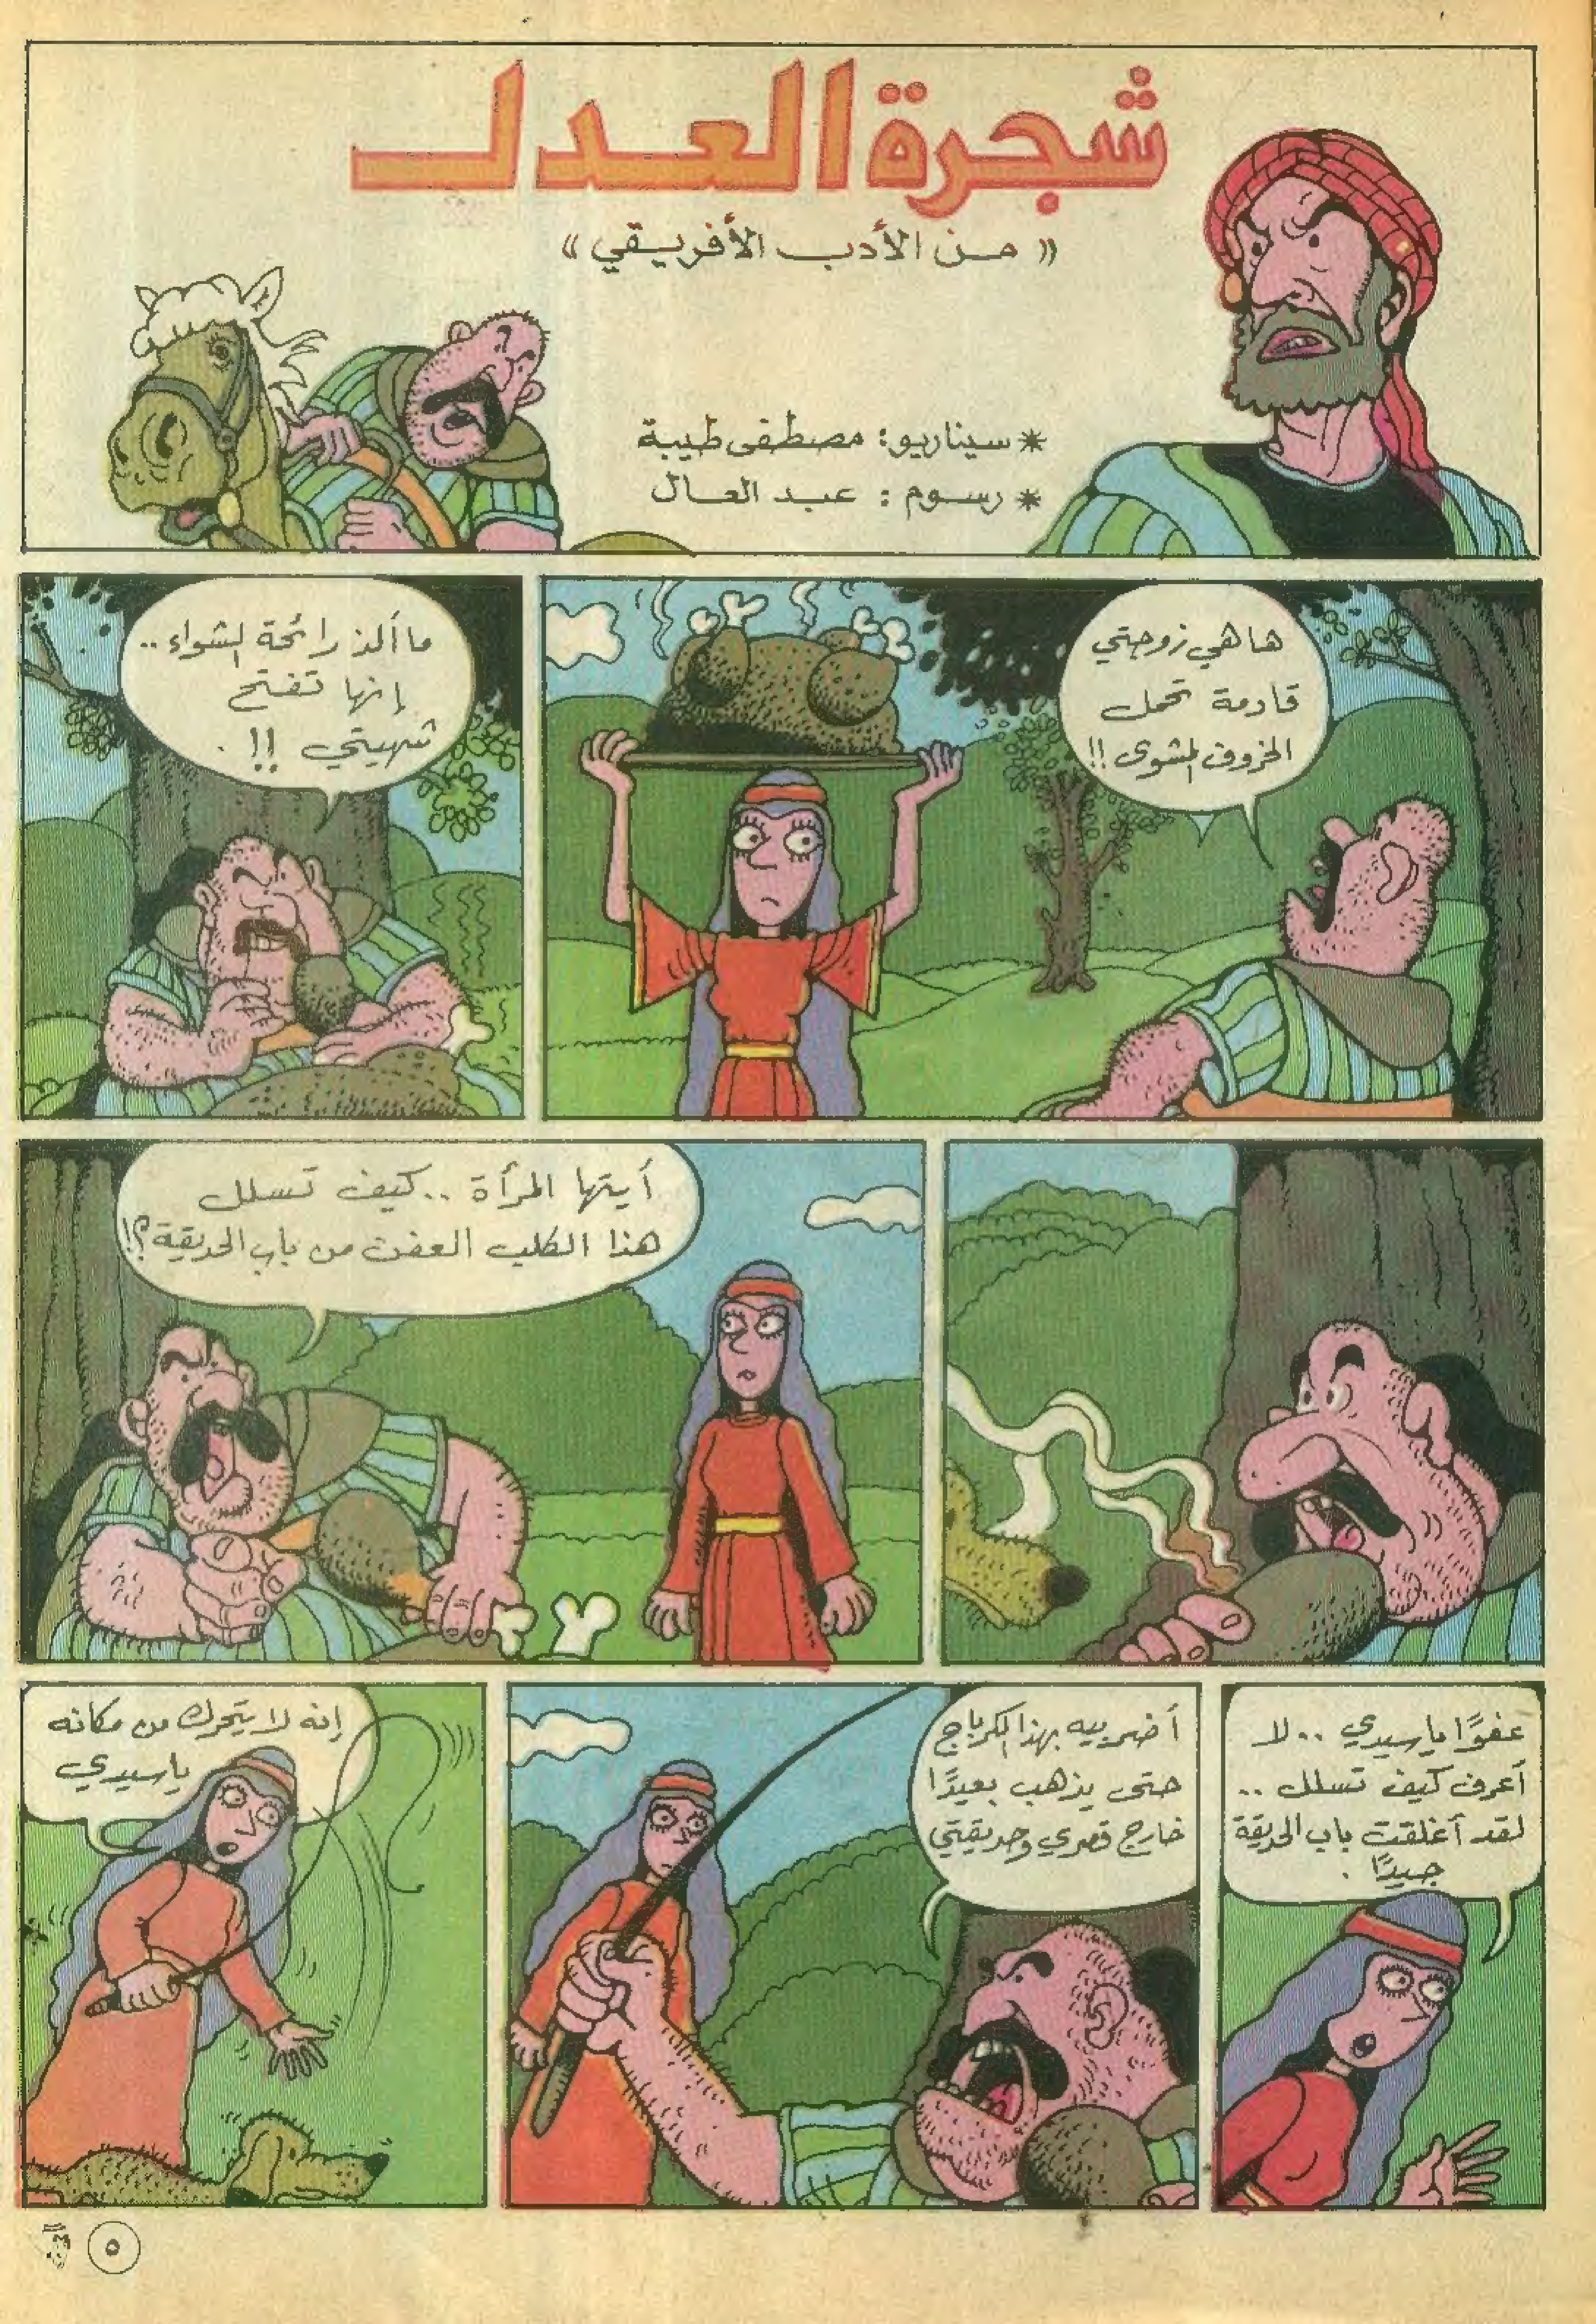 شجرة العدل
« من الأدب الأفريقي »
* سيناريو: مصطفى طيبة
* رسوم : عبد العال
ها هي زوجتي
قادمة تحمل
الخروف المشوى !!
ما ألذ رائحة الشواء ..
إنها تفتح
شهيتي !! .
أيتها المرأة .. كيف تسلل
هذا الكلب العفن من باب الحديقة؟!
عفوًا يا سيدي .. لا
أعرف كيف تسلل ..
لقد أغلقت باب الحديقة
جيدًا .
أضربيه بهذا الكرباج
حتى يذهب بعيدًا
خارج قصري وحديقتي
إنه لا يتحرك من مكانه
يا سيدي
٥